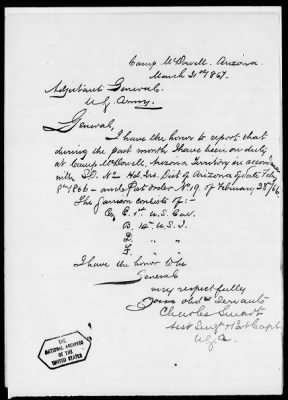 Camp McDowell, Arizona
March 31st 1867.
Adjutant General,
U.S. Army.
General,
I have the honor to report that
during the past month I have been on duty
at Camp McDowell, Arizona Territory in accord
with S.O. No Hd. Qrs. Dist of Arizona of date Feby
8th 1866 - and Post order No 19 of February 28/66
The Garrison consists of:-
Co. E. 1st U.S. Cav.
B. 14th U.S.I.
D. "
F. "
I have the honor to be
General
very respectfully
Your obdt Servant
Charles Smart
Asst Surg & Bvt Capt
U.S.A.
THE
NATIONAL ARCHIVES
OF THE
UNITED STATES